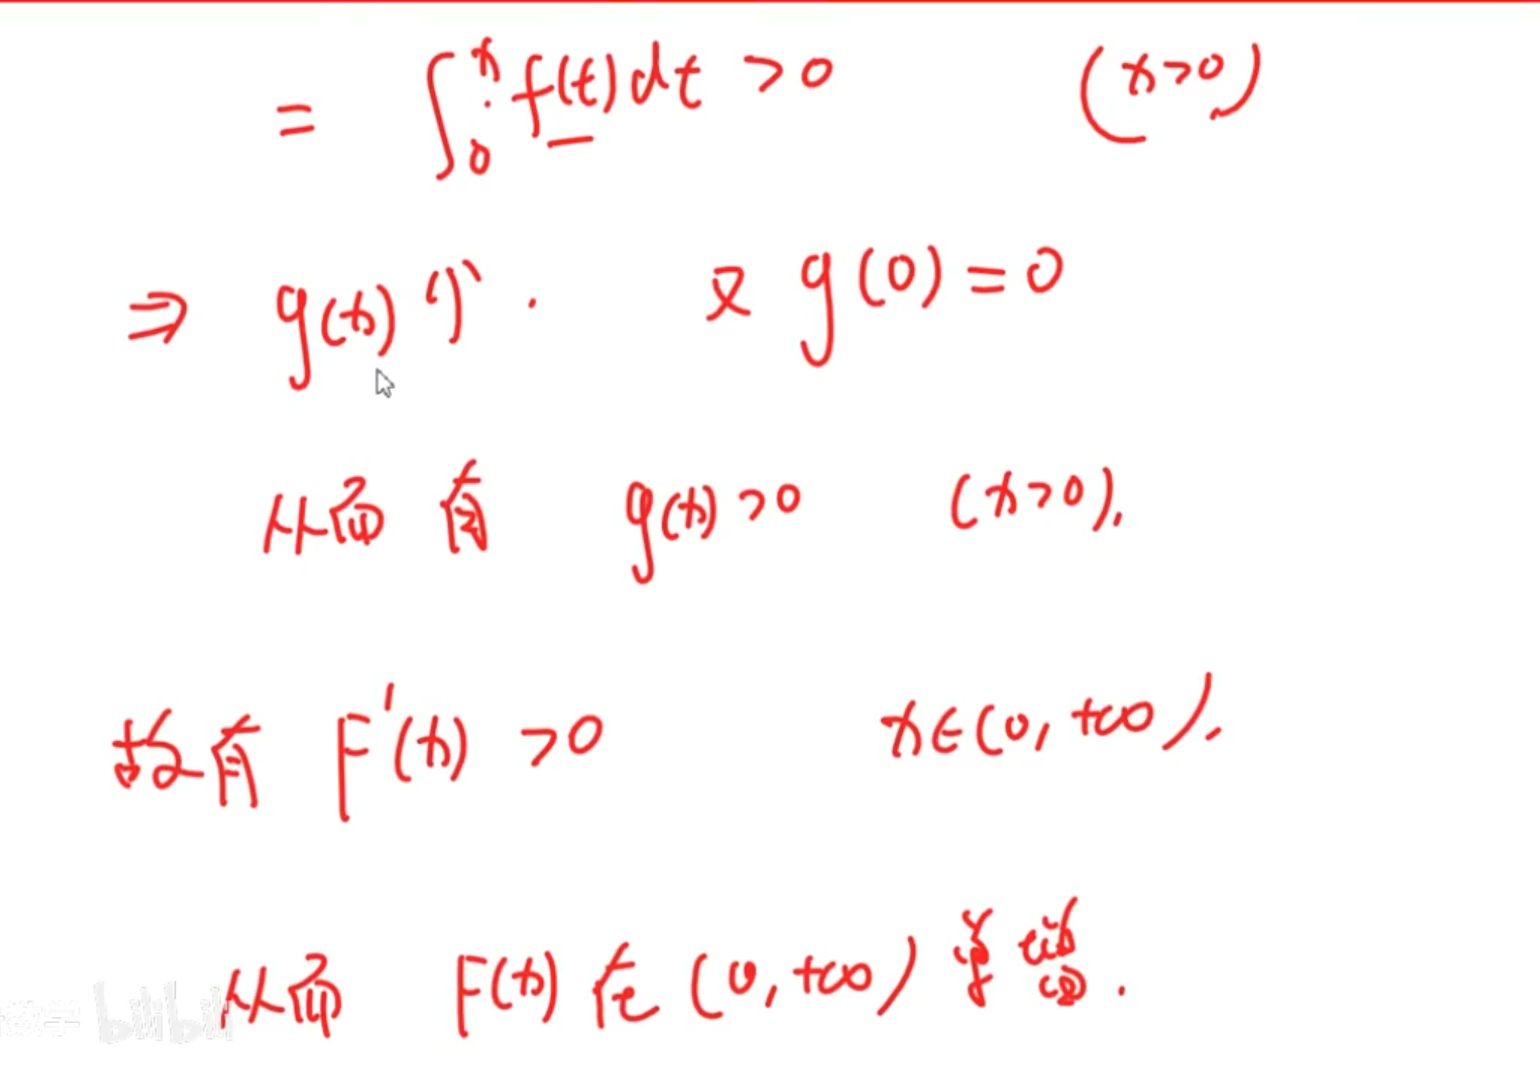 = ∫₀ˣ f(t)dt >0 (x>0)
⇒ g(x)↗. 又 g(0)=0
从而有 g(x)>0 (x>0).
故有 F'(x)>0 x∈(0,+∞).
从而 F(x)在(0,+∞)单增.
数学 bilibili